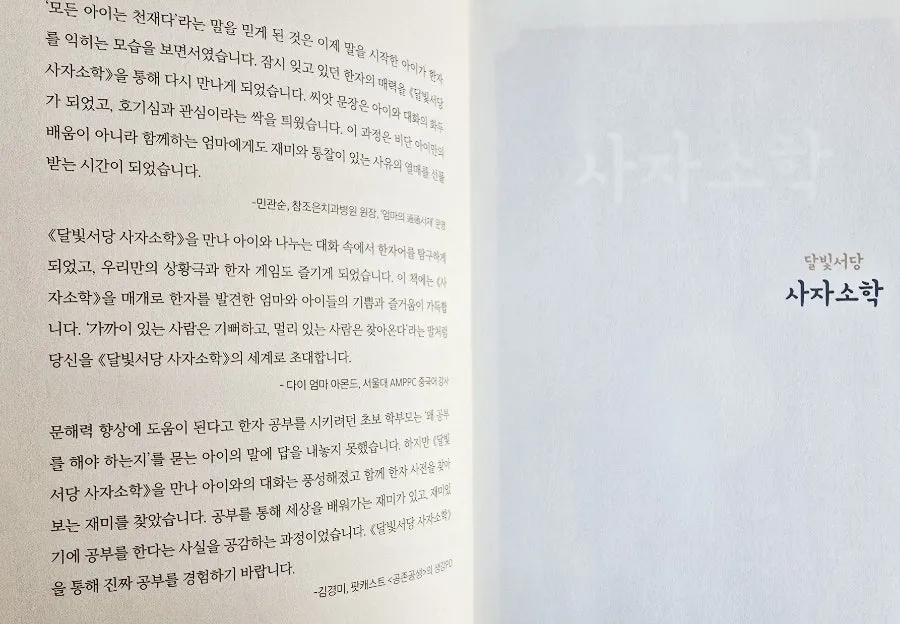 ‘모든 아이는 천재다’라는 말을 믿게 된 것은 이제 말을 시작한 아이가 한자
를 익히는 모습을 보면서였습니다. 잠시 잊고 있던 한자의 매력을 《달빛서당
사자소학》을 통해 다시 만나게 되었습니다. 씨앗 문장은 아이와 대화의 화두
가 되었고, 호기심과 관심이라는 싹을 틔웠습니다. 이 과정은 비단 아이만의
배움이 아니라 함께하는 엄마에게도 재미와 통찰이 있는 사유의 열매를 선물
받는 시간이 되었습니다.
-민관순, 참조은치과병원 원장, ‘엄마의 서재’ 운영
《달빛서당 사자소학》을 만나 아이와 나누는 대화 속에서 한자어를 탐구하게
되었고, 우리만의 상황극과 한자 게임도 즐기게 되었습니다. 이 책에는 《사
자소학》을 매개로 한자를 발견한 엄마와 아이들의 기쁨과 즐거움이 가득합
니다. ‘가까이 있는 사람은 기뻐하고, 멀리 있는 사람은 찾아온다’라는 말처럼
당신을 《달빛서당 사자소학》의 세계로 초대합니다.
- 다이 엄마 아몬드, 서울대 AMPPC 중국어 강사
문해력 향상에 도움이 된다고 한자 공부를 시키려던 초보 학부모는 ‘왜 공부
를 해야 하는지’를 묻는 아이의 말에 답을 내놓지 못했습니다. 하지만 《달빛
서당 사자소학》을 만나 아이와의 대화는 풍성해졌고 함께 한자 사전을 찾아
보는 재미를 찾았습니다. 공부를 통해 세상을 배워가는 재미가 있고, 재미있
기에 공부를 한다는 사실을 공감하는 과정이었습니다. 《달빛서당 사자소학》
을 통해 진짜 공부를 경험하기 바랍니다.
-김경미, 팟캐스트 <공존공성>의 생강PD
사자소학
달빛서당
사자소학